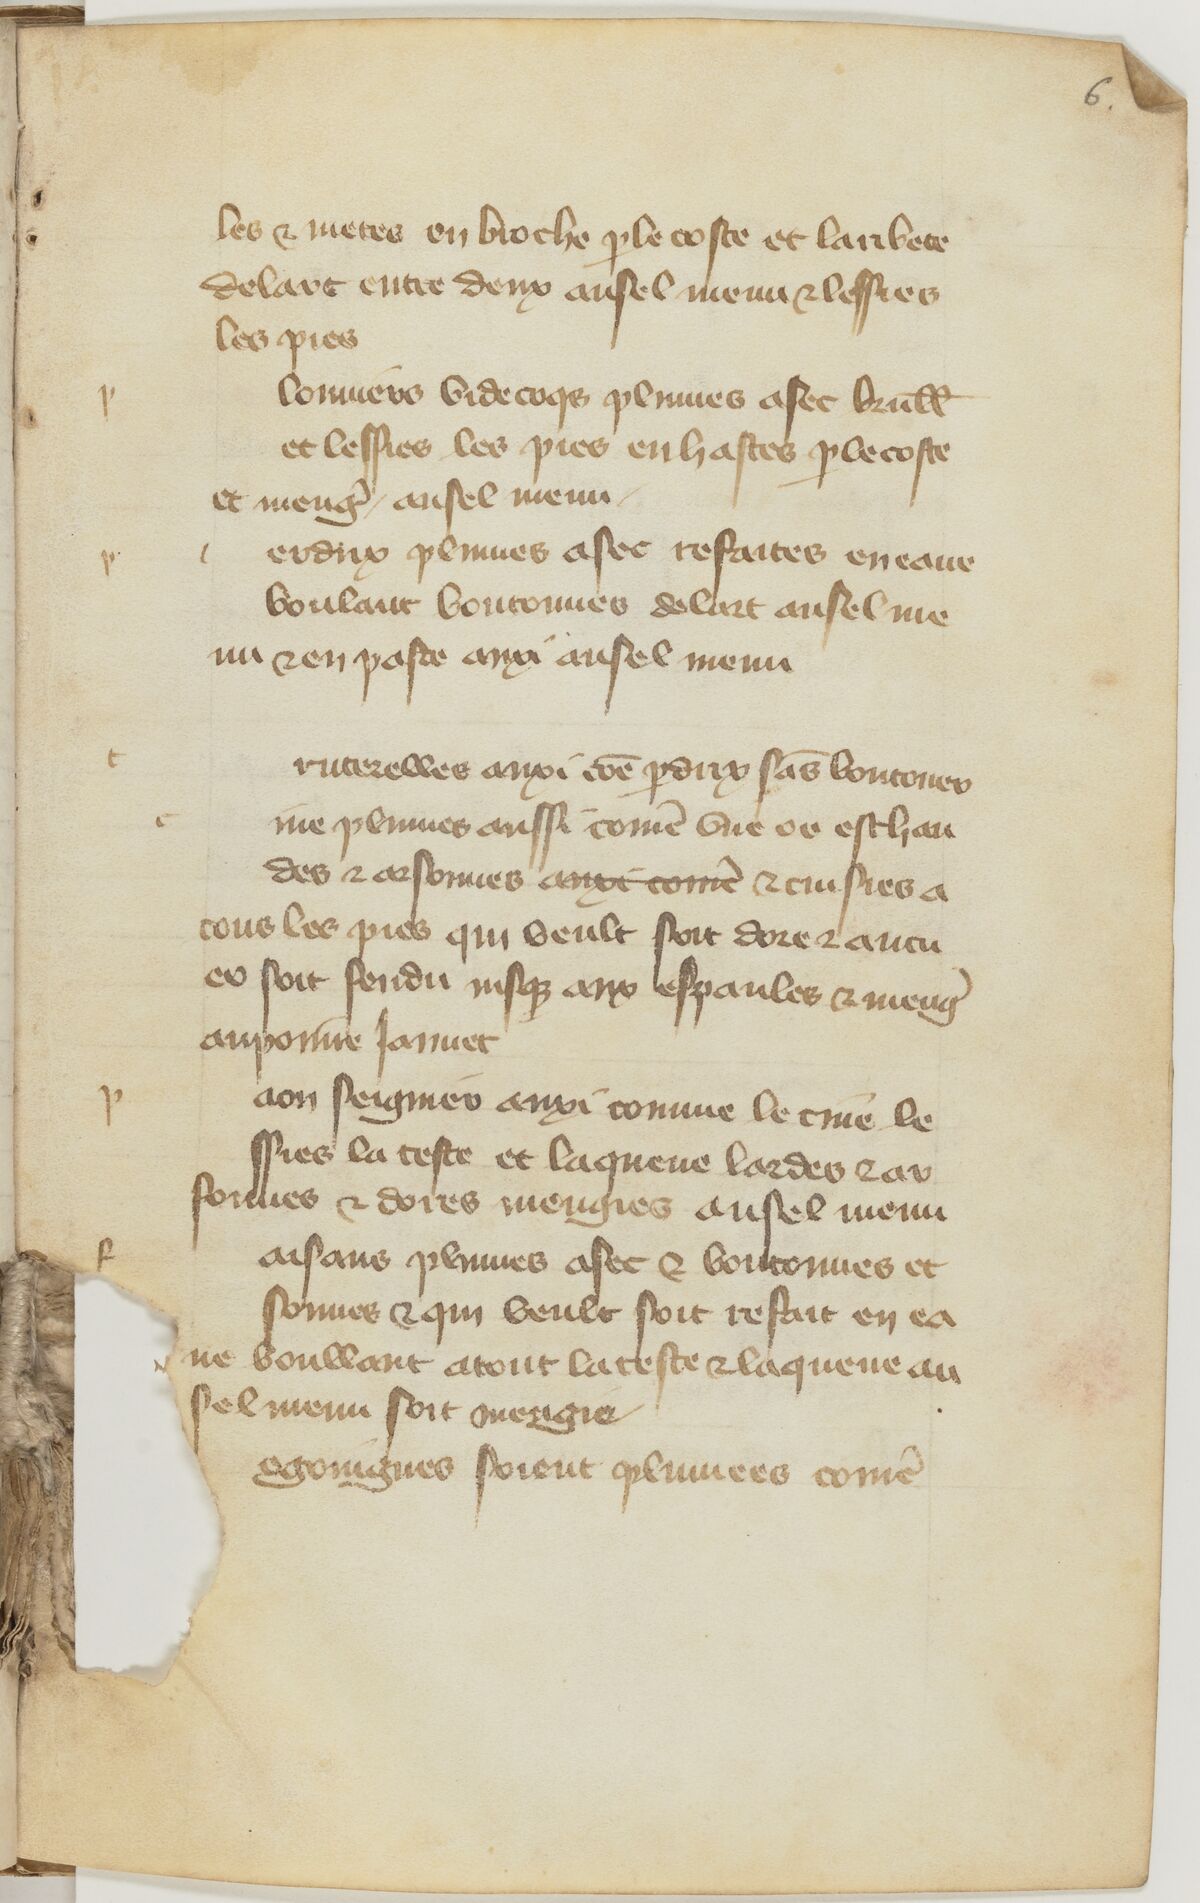 6.
les & metes en broche ple coste et laribete
delart entre deux ausel menu & lessies
les pies
p
louviers videcoqs plumes asec brull
et lessies les pies en hastes ple coste
et meng / ausel menu /
p
erdrix plumes asec refaites en eaue
boulant boutonnes de lart ausel me
nu & en paste auxi ausel menu
t
ruterelles auxi coe pdrix sas boutoner
c
ine plumes aussi come une oe eschau
des & arsonnes auxi come & cuisies a
tous les pies qui veult soit dore & aucu
er soit fendu jusq aux espaules & meng
aupoivre Jaunet
p
aon seignier auxi comme le cine le
ssies la teste et laqueue lardes & ar
sonnes & dores mengies ausel menu
f
aisans plumes asec & boutonnes et
sonnes & qui veult soit refait en ea
ue boullant atout la teste & laqueue au
sel menu soit mengie
egoingnes soient plumees come